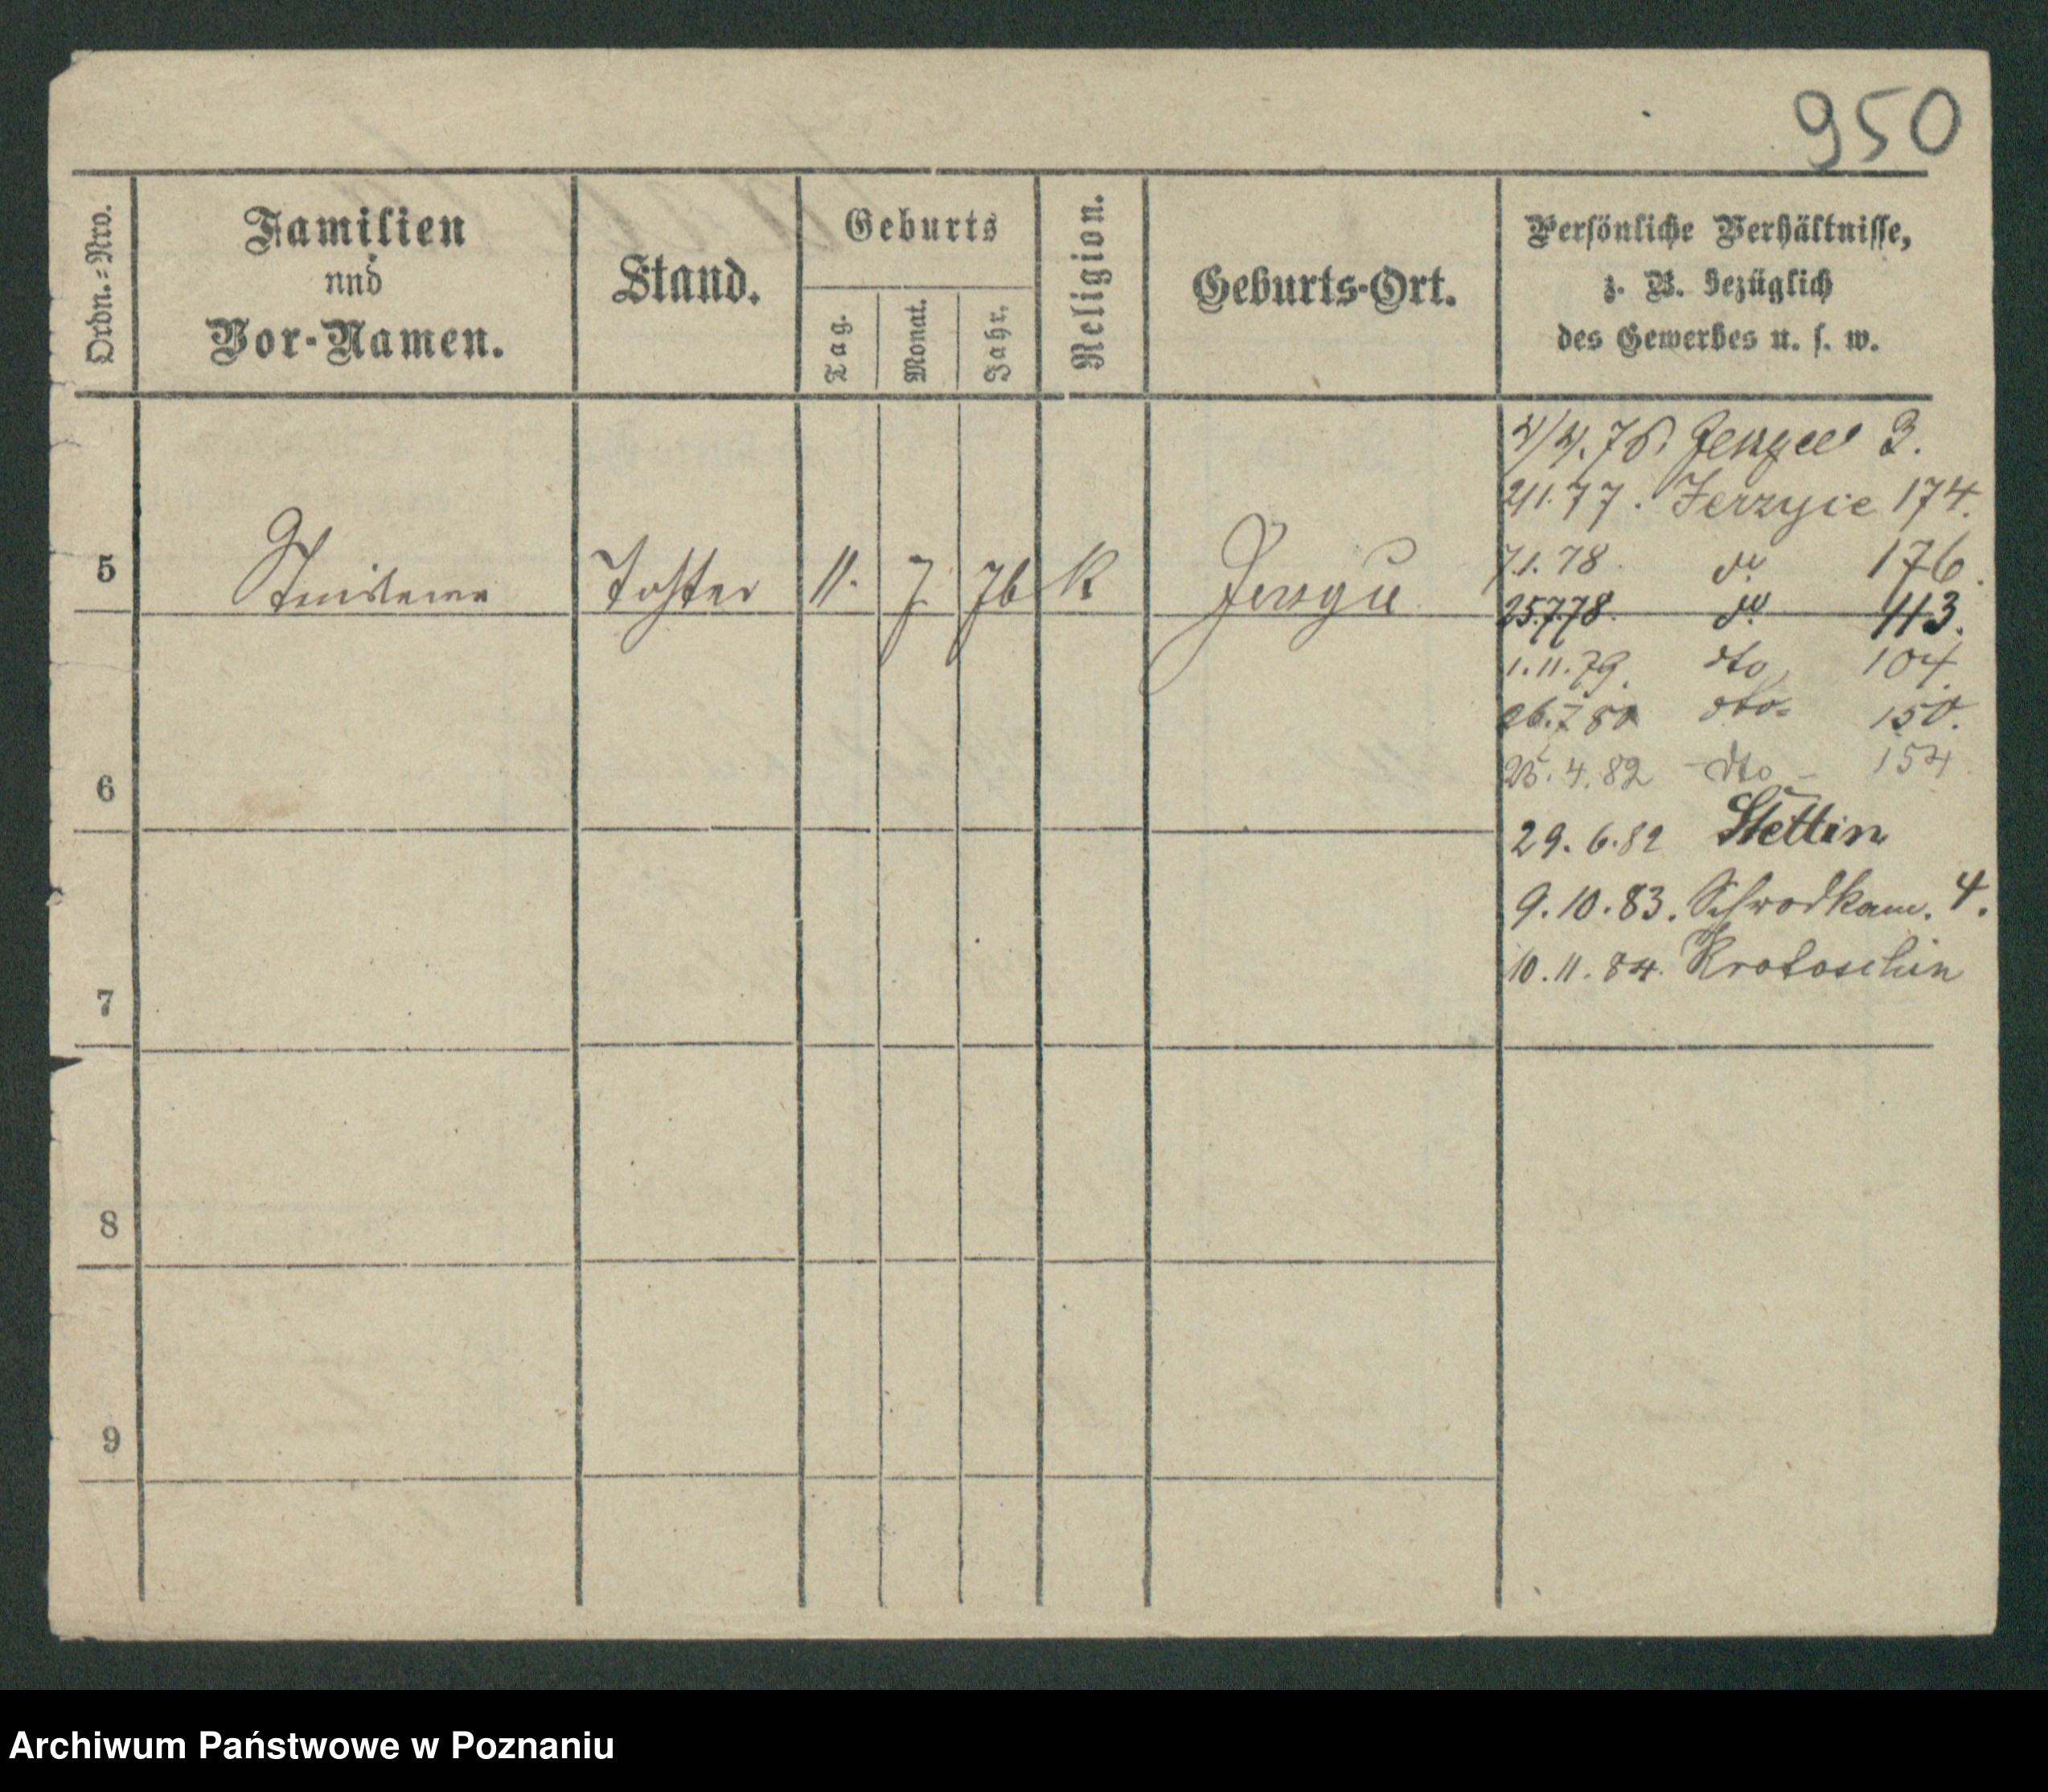 950
Ordn.=Nro.
Familien
nnd
Vor-Namen.
Stand.
Geburts
Tag.
Monat.
Jahr.
Religion.
Geburts-Ort.
Persönliche Verhältnisse,
z. B. bezüglich
des Gewerbes u. s. w.
3.
77. Jerzyce 174.
5 Tochter 11. 7. 76 K
7.1.78. 176.
25.7.78. 113.
1.11.79. dto 104.
26.7 80 dto 150.
6
25.4.82 - dto - 154
29.6.82 Stettin
9.10.83. Schrodkam. 4.
10.11.84. Krotoschin
7
8
9
Archiwum Państwowe w Poznaniu